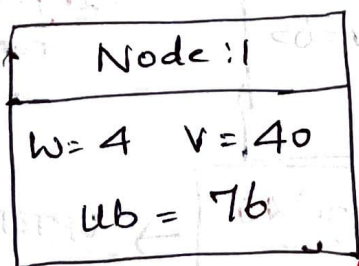 Node:1
W= 4 V= 40
Ub = 76